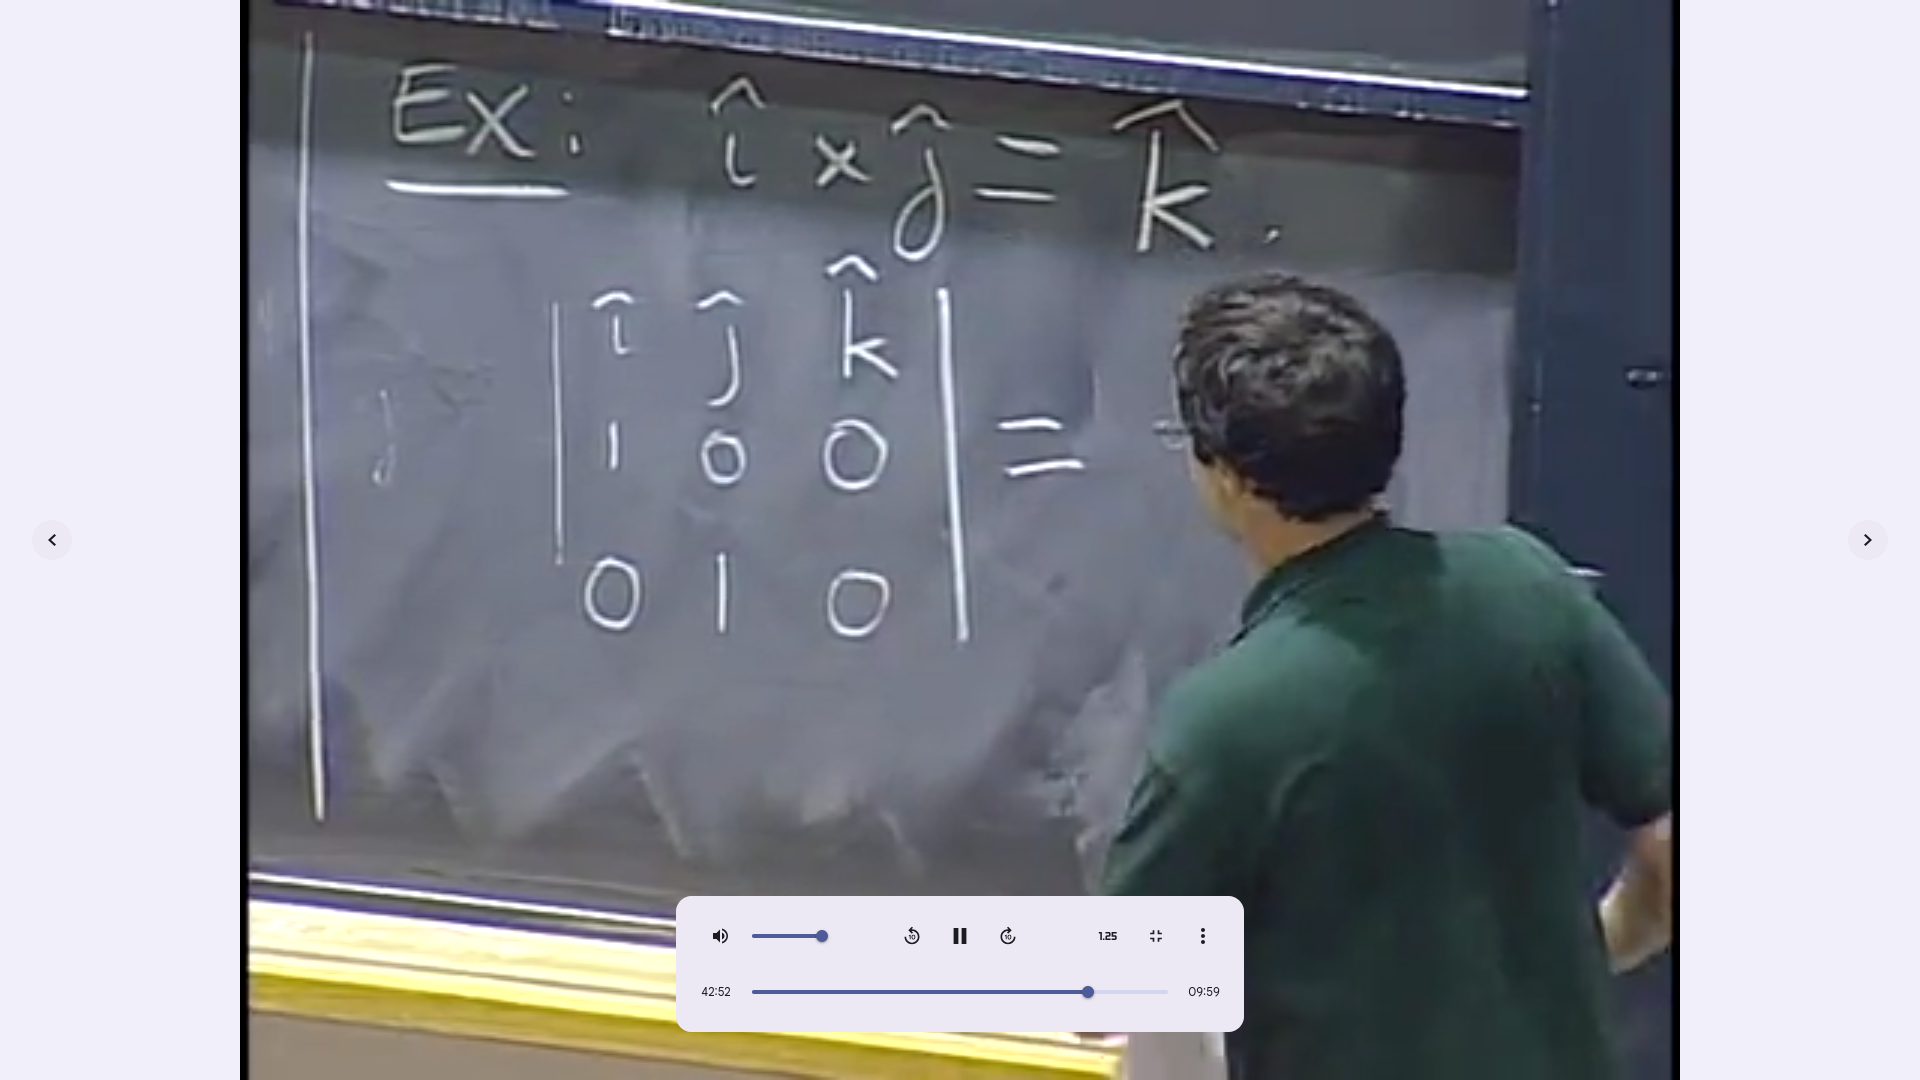 Ex: î × ĵ = k̂.
| î ĵ k̂ |
| 1 0 0 | =
| 0 1 0 |
1.25
42:52 09:59